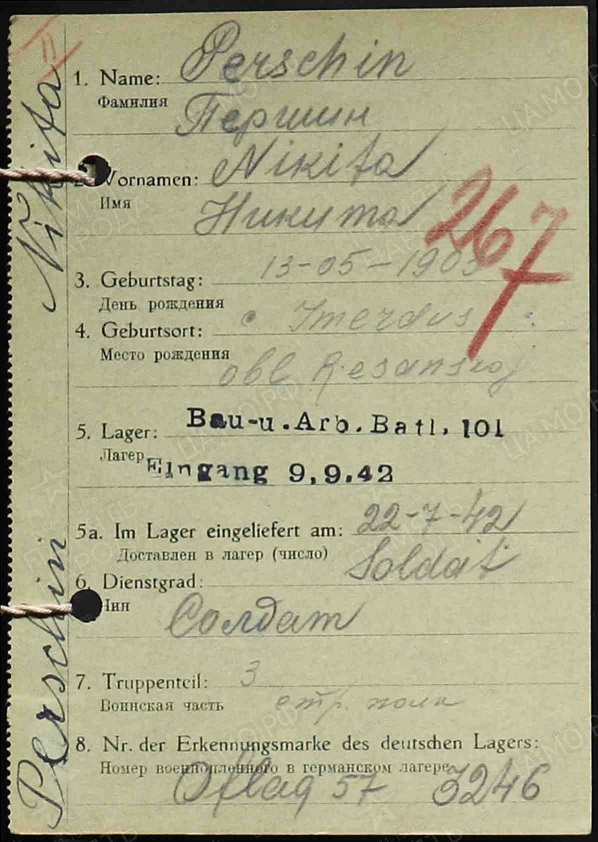 II
1. Name: Perschin
Фамилия Першин
2. Vornamen: Nikita
Имя Никита
267
3. Geburtstag: 13-05-1905
День рождения
4. Geburtsort: c Imerdus
Место рождения
obl Resanskoj
5. Lager: Bau-u.Arb.Batl. 101
Лагерь Eingang 9.9.42
5a. Im Lager eingeliefert am: 22-7-42
Доставлен в лагерь (число)
6. Dienstgrad: Soldat
Чин Солдат
7. Truppenteil: 3
Воинская часть стр. полк
8. Nr. der Erkennungsmarke des deutschen Lagers:
Номер военнопленного в германском лагере
Oflag 57 3246
Perschin Nikita